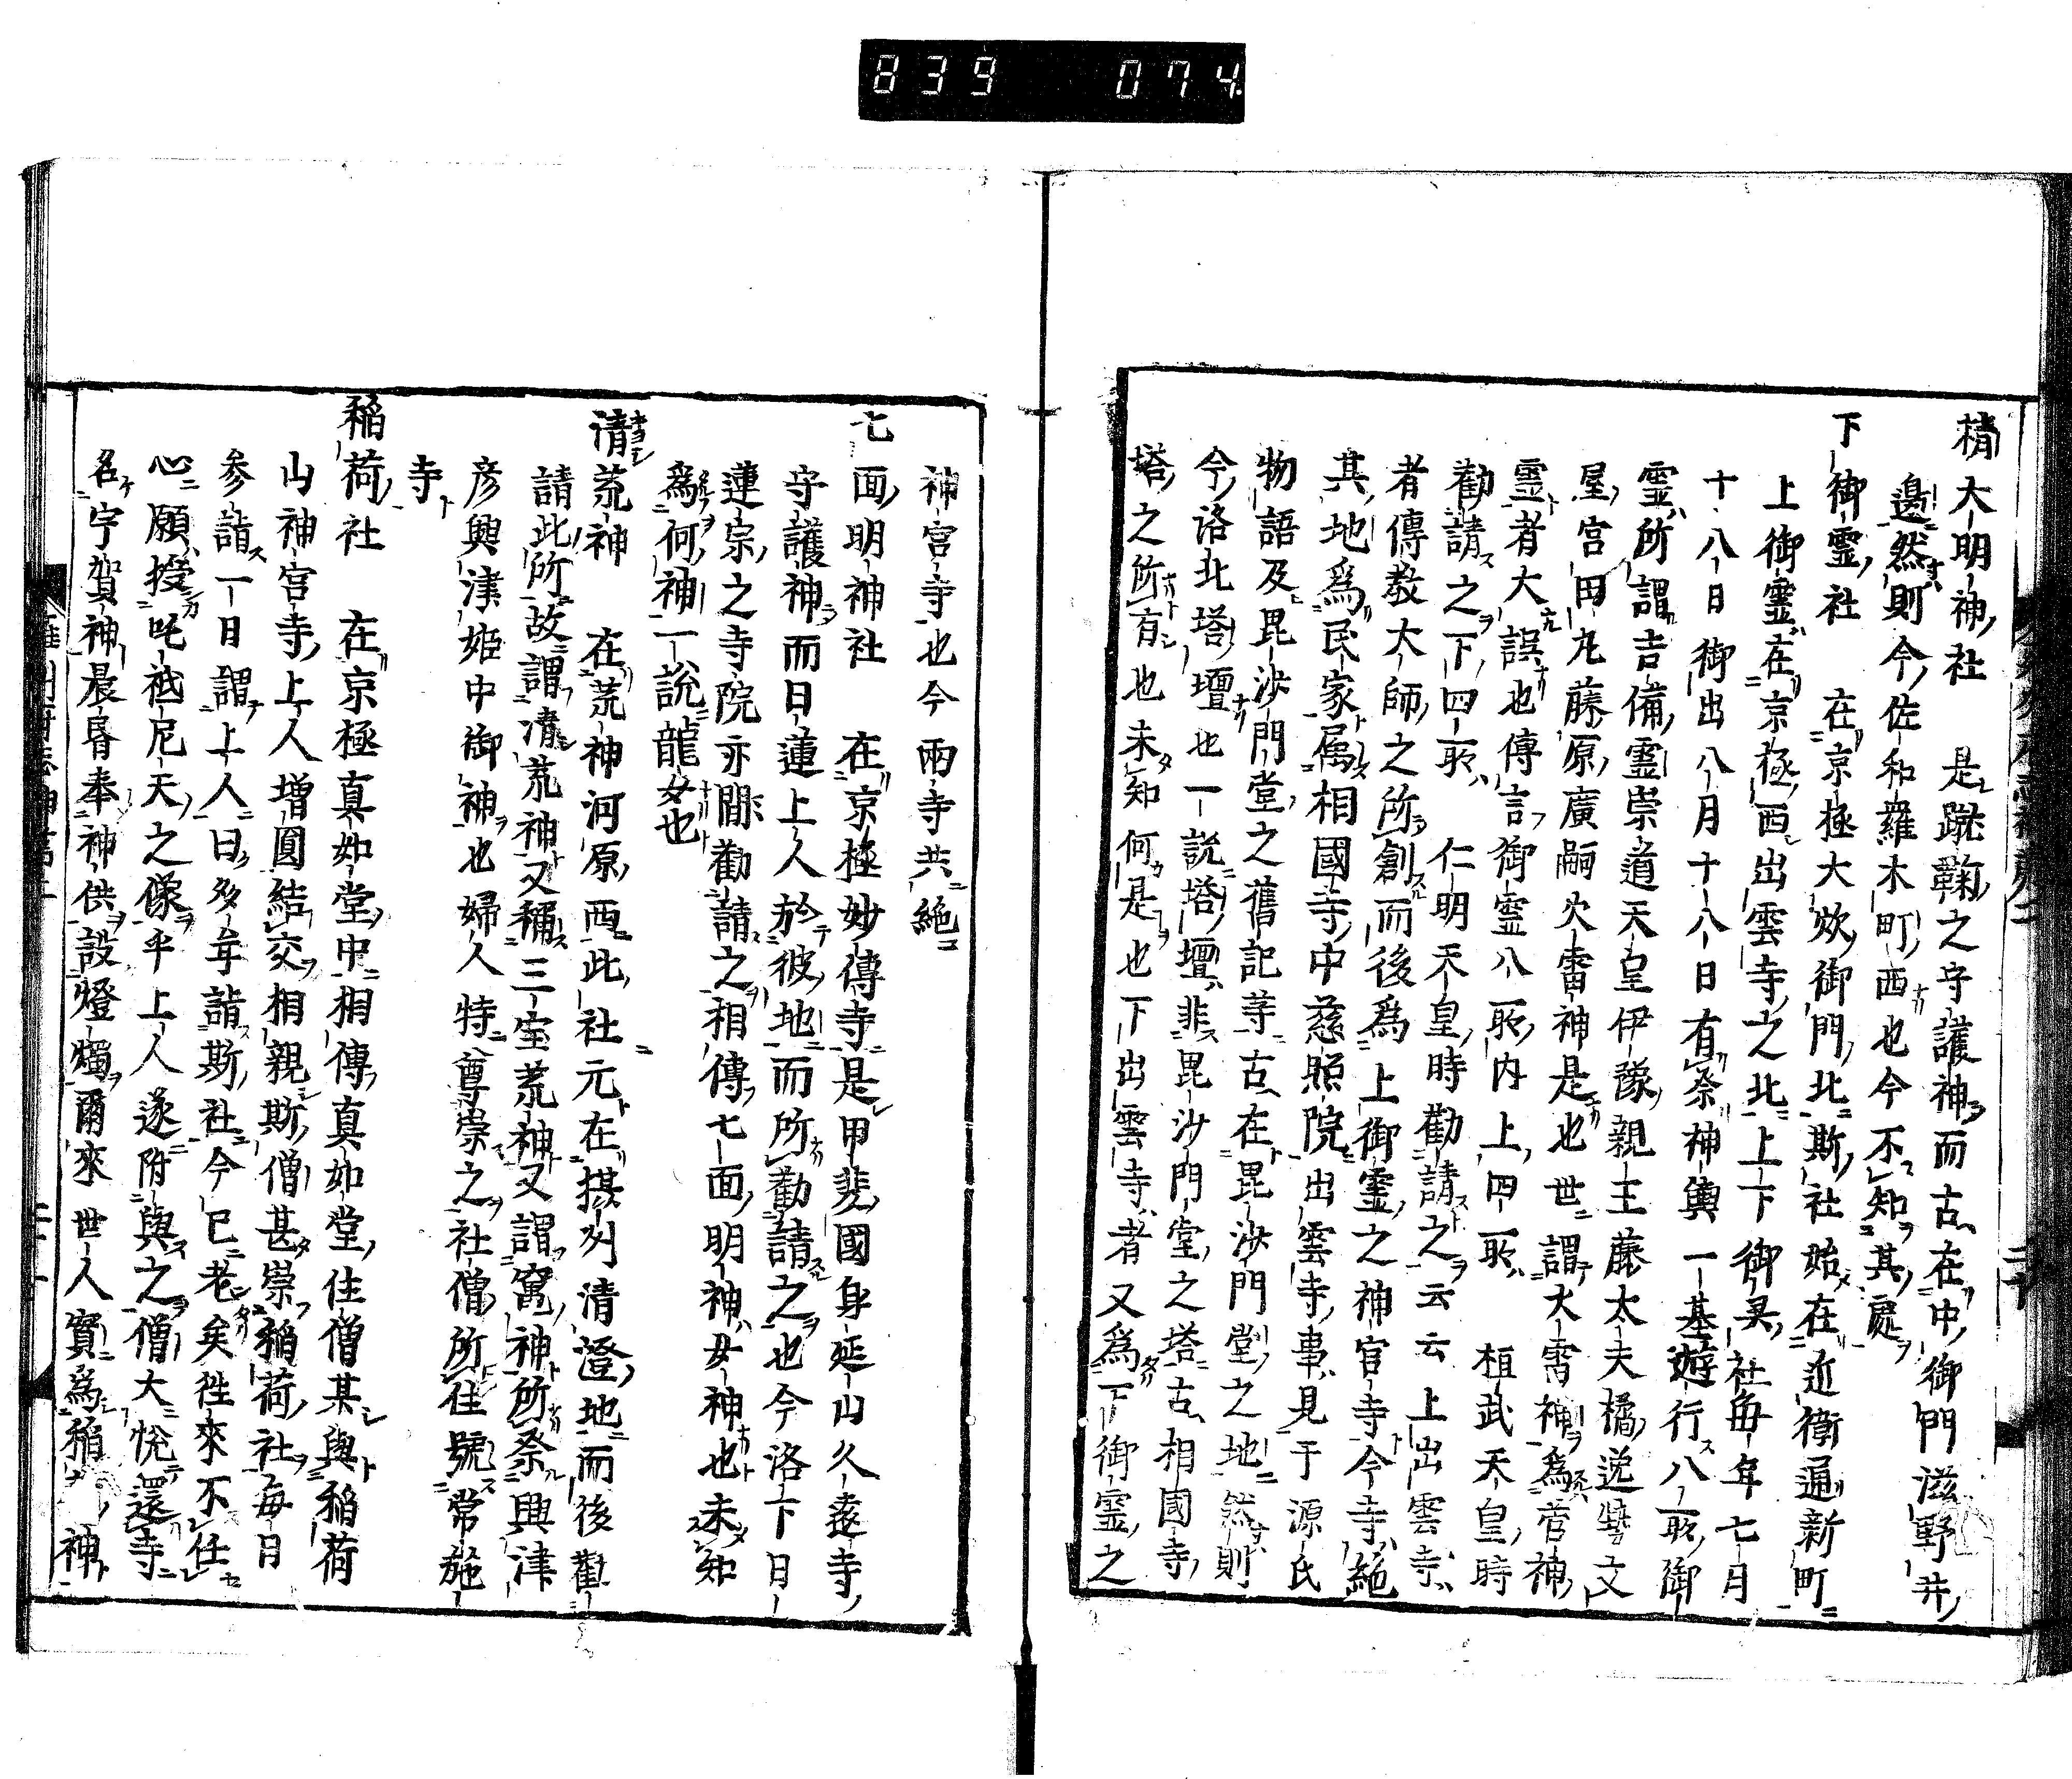 839 074
精大明神社 是蹴鞠之守護神而古在中御門滋野井
邊然則今佐和羅木町西也今不知其處
下御霊社 在京極大炊御門北斯社始在近衛通新町
上御霊在京極西出雲寺之北上下御灵社毎年七月
十八日御出八月十八日有祭神輿一基遊行八所御
霊所謂吉備霊崇道天皇伊豫親王藤太夫橘逸勢文
屋宮田丸藤原廣嗣火雷神是也世謂大雷神爲菅神
霊者大誤也傳言御霊八所内上四所 桓武天皇時
勸請之下四所 仁明天皇時勸請之云云上出雲寺
者傳教大師之所創而後爲上御霊之神宮寺今寺絶
其地爲民家屬相國寺中慈照院出雲寺事見于源氏
物語及毘沙門堂之舊記等古在毘沙門堂之地然則
今洛北塔壇也一説塔壇非毘沙門堂之塔古相國寺
塔之所有也未知何是也下出雲寺者又爲下御霊之
神宮寺也今兩寺共絶
七面明神社 在京極妙傳寺是甲斐國身延山久遠寺
守護神而日蓮上人於彼地而所勸請之也今洛下日
蓮宗之寺院亦間勸請之相傳七面明神女神也未知
爲何神一説龍女也
清荒神 在荒神河原西此社元在摂州清澄地而後勸
請此所故謂清荒神又稱三宝荒神又謂竃神所祭興津
彦興津姫中御神也婦人特尊崇之社僧所住號常施
寺
稲荷社 在京極真如堂中相傳真如堂住僧某與稲荷
山神宮寺上人増圓結交相親斯僧甚崇稲荷社毎日
参詣一日謂上人曰多年詣斯社今已老矣徃來不任
心願授吒祗尼天之像乎上人遂附與之僧大悦還寺
名宇賀神晨昏奉神供設燈燭爾來世人實爲稲荷神